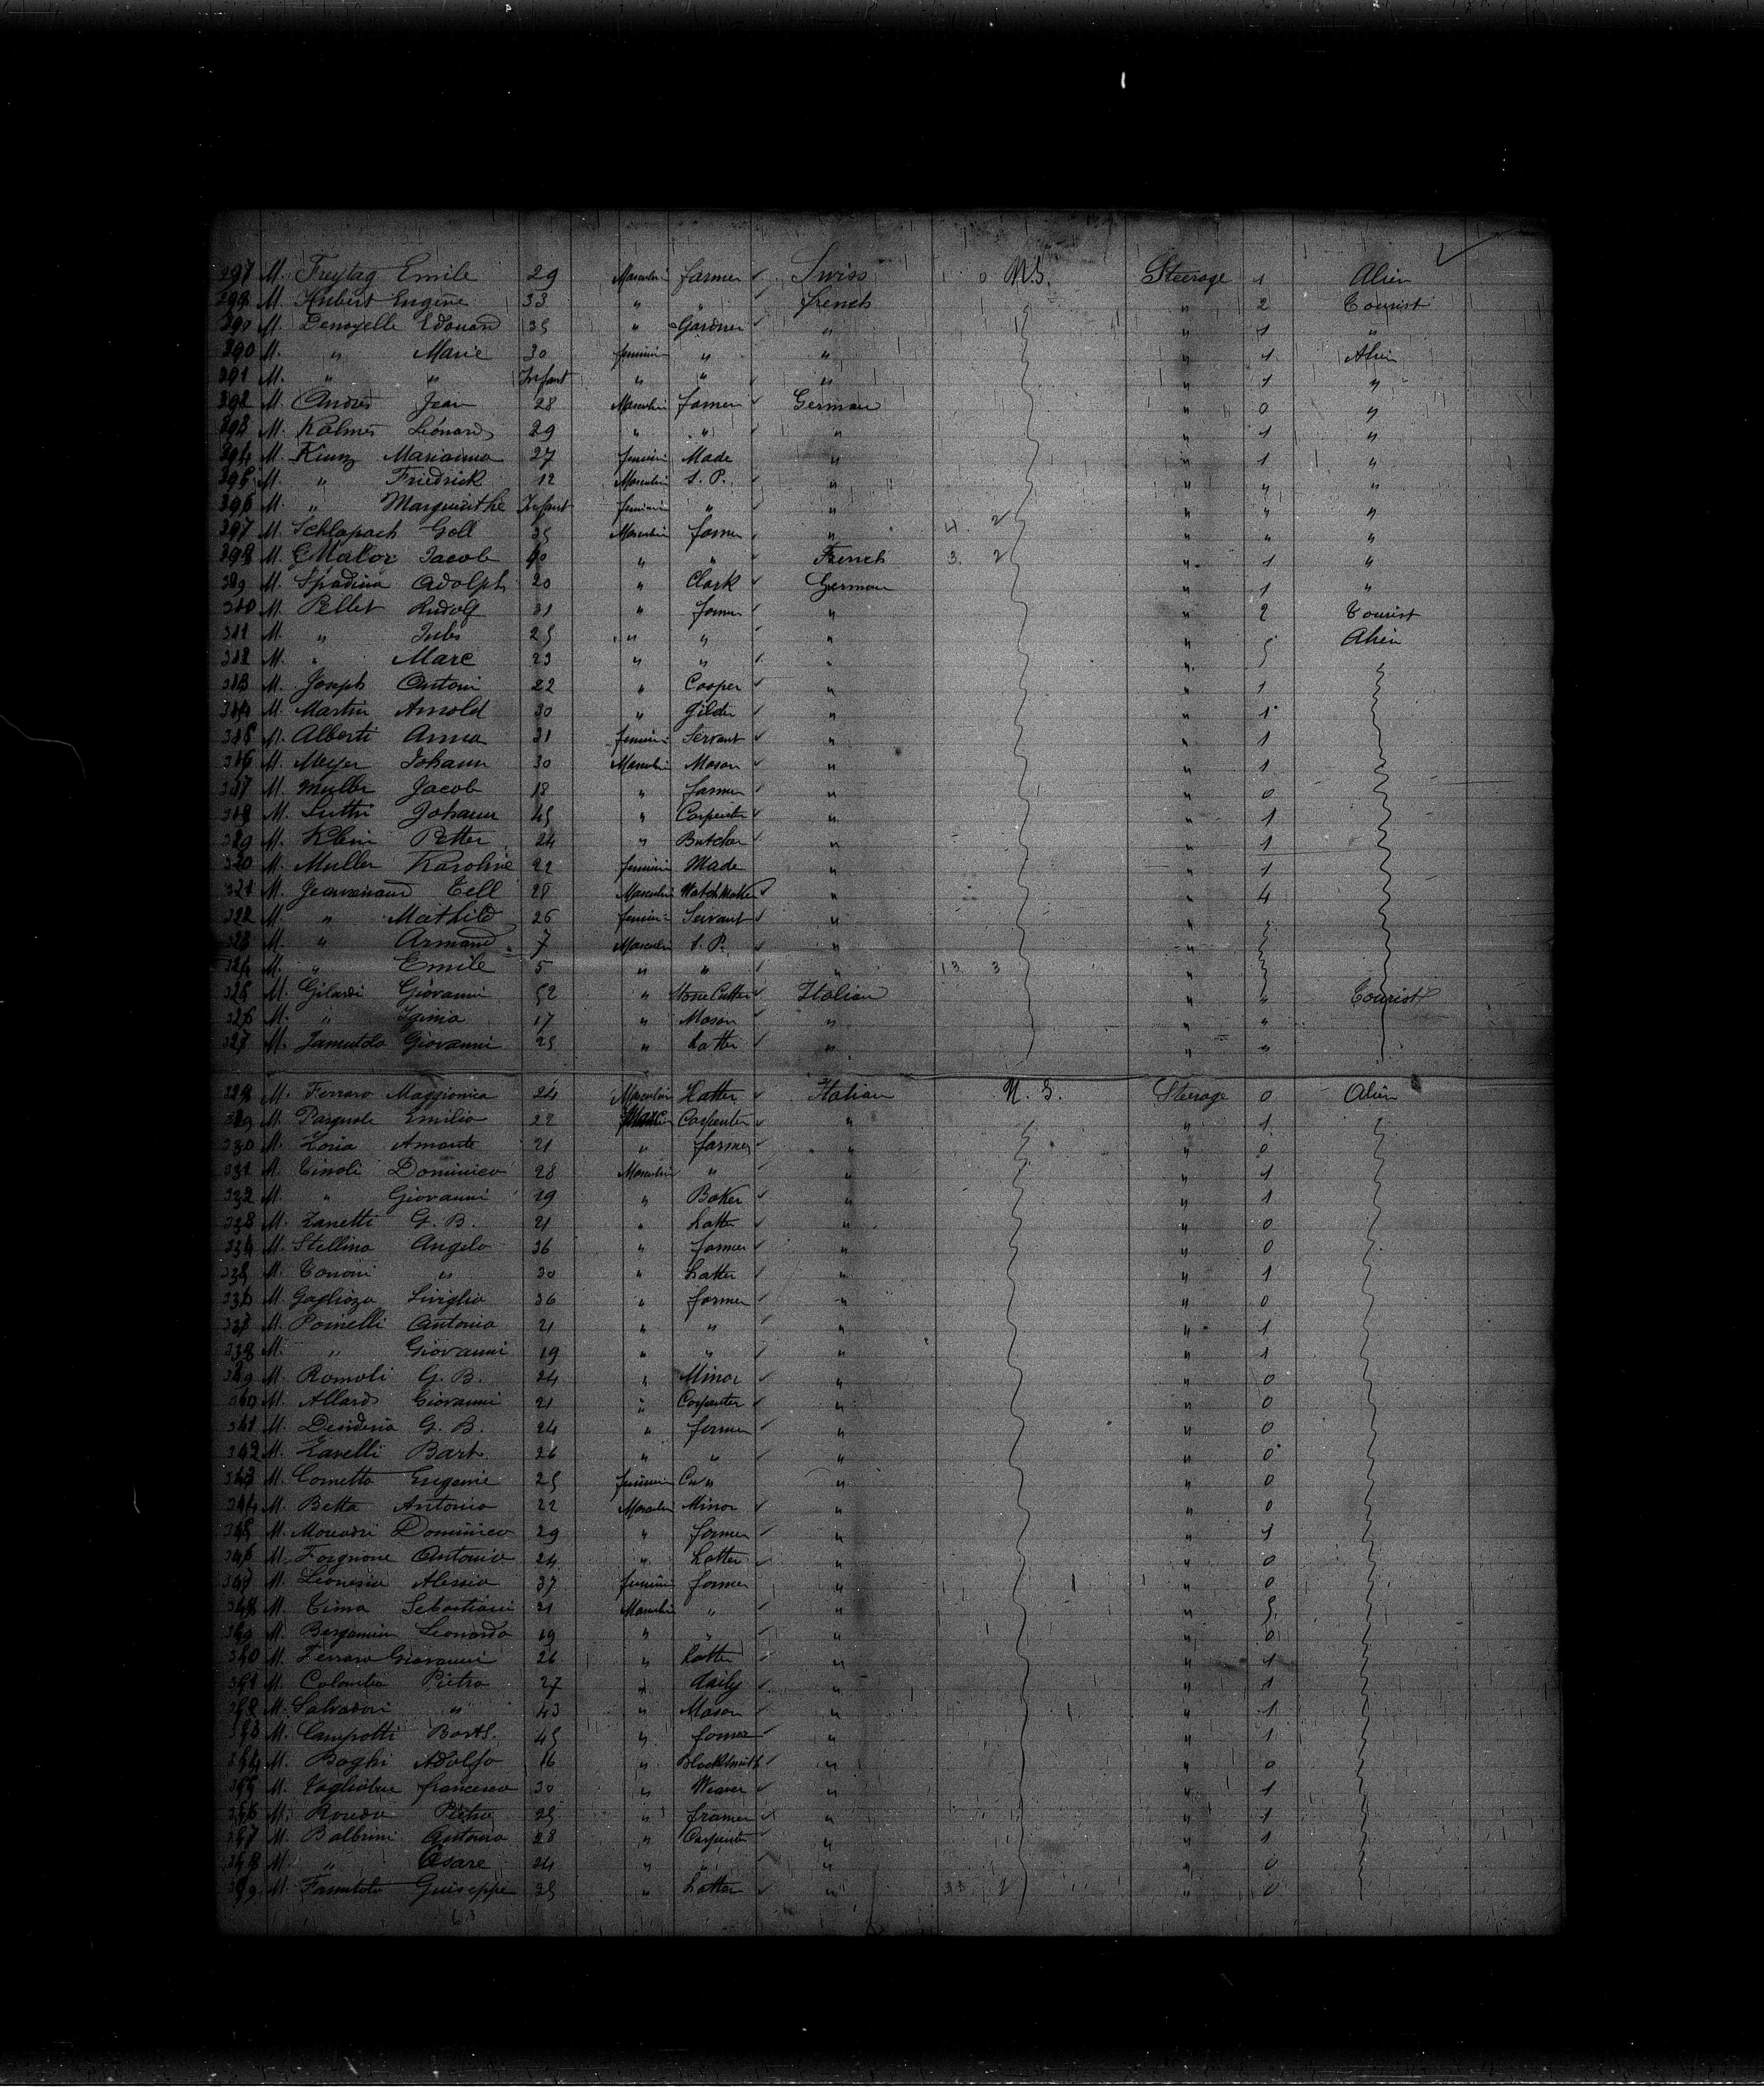 M. Freytag Emile 29 Masculin farmer Swiss U.S. Steerage 1 Alien
M. Hubert Eugène 33 " " french " 2 Tourist
M. Denoyelle Edouard 35 " Gardner " " 1 "
290 M. " Marie 30 feminin " " " 1 Alien
291 M. " " Infant " " " " 1 "
292 M. Andres Jean 28 Masculin farmer German " 0 "
293 M. Kalmes Léonard 29 " " " " 1 "
294 M. Kunz Marianna 27 feminin Made " " 1 "
295 M. " Friedrick 12 Masculin S. P. " " " "
296 M. " Marguerithe Infant feminin " " " " "
297 M. Schlapach Goll 35 Masculin farmer " 4. 2 " " "
298 M. Jacob 40 " " French 3. 2 " 1 "
M. Spadina Adolph 20 " Clark German " 1 "
310 M. Pellet Rudolf 31 " farmer " " 2 Tourist
311 M. " Jules 25 " " " " 5 Alien
312 M. " Marc 23 " " " " 5
313 M. Joseph Antoni 22 " Cooper " " 1
314 M. Martin Arnold 30 " Gilder " " 1
315 M. Alberti Anna 31 feminin Servant " " 1
316 M. Meyer Johann 30 Masculin Mason " " 1
317 M. Muller Jacob 18 " farmer " " 0
318 M. Luthi Johann 45 " Carpenter " " 1
M. Klein Petter 24 " Butcher " " 1
320 M. Muller Karoline 22 feminin Made " " 1
321 M. Jeanrenaud Tell 28 Masculin Watchmaker " " 4
322 M. " Mathild 26 feminin Servant " "
323 M. " Armand 7 Masculin S. P. " "
324 M. " Emile 5 " " " 13 3 "
325 M. Gilardi Giovanni 52 " Stone Cutter Italian " " Tourist
326 M. " 17 " Mason " " "
327 M. Giovanni 25 " Latter " " "
328 M. Ferraro Maggionica 24 Masculin Hatter Italian U. S. Steerage 0 Alien
329 M. Pasquale Emilio 22 Carpenter " " 1
330 M. Zoria Amante 21 " farmer " " 0
331 M. Tinoli Dominico 28 Masculin " " " 1
332 M. " Giovanni 29 " Baker " " 1
333 M. Zanetti G. B. 21 " Latter " " 0
334 M. Stellino Angelo 36 " farmer " " 0
335 M. Tononi " 30 " Latter " " 1
336 M. Gaglioza Siviglia 36 " farmer " " 0
337 M. Poinelli Antonio 21 " " " " 1
338 M. " Giovanni 19 " " " " 1
339 M. Romoli G. B. 24 " Minor " " 0
340 M. Allard Giovanni 21 " Carpenter " " 0
341 M. Desideria G. B. 24 " farmer " " 0
342 M. Zanelli Bart. 26 " " " " 0
343 M. Cometto Eugenie 25 feminin " " 0
344 M. Betta Antonio 22 Masculin Minor " " 0
345 M. Dominico 29 " farmer " " 1
346 M. Forgnone Antonio 24 " Latter " " 0
347 M. Leonesia Alessio 37 feminin farmer " " 0
348 M. Cima Sebastiani 21 Masculin " " " 5
349 M. Bergamin Leonardo 19 " " " " 0
350 M. Ferraro Giovanni 26 " Latter " " 1
351 M. Colombo Pietro 27 " daily " " 1
352 M. Salvadori " 43 " Mason " " 1
353 M. Campotti Bort. 45 " farmer " " 1
354 M. Boghi Adolfo 16 " Blacksmith " " 0
355 M. Tagliabue francesco 30 " Weaver " " 1
356 M. Pietro 25 " framer " " 1
357 M. Balbrini Antonio 28 " Carpenter " " 1
358 M. " Cesare 24 " " " " 0
359 M. Guiseppe 35 " Latter " 33 2 " 0
63